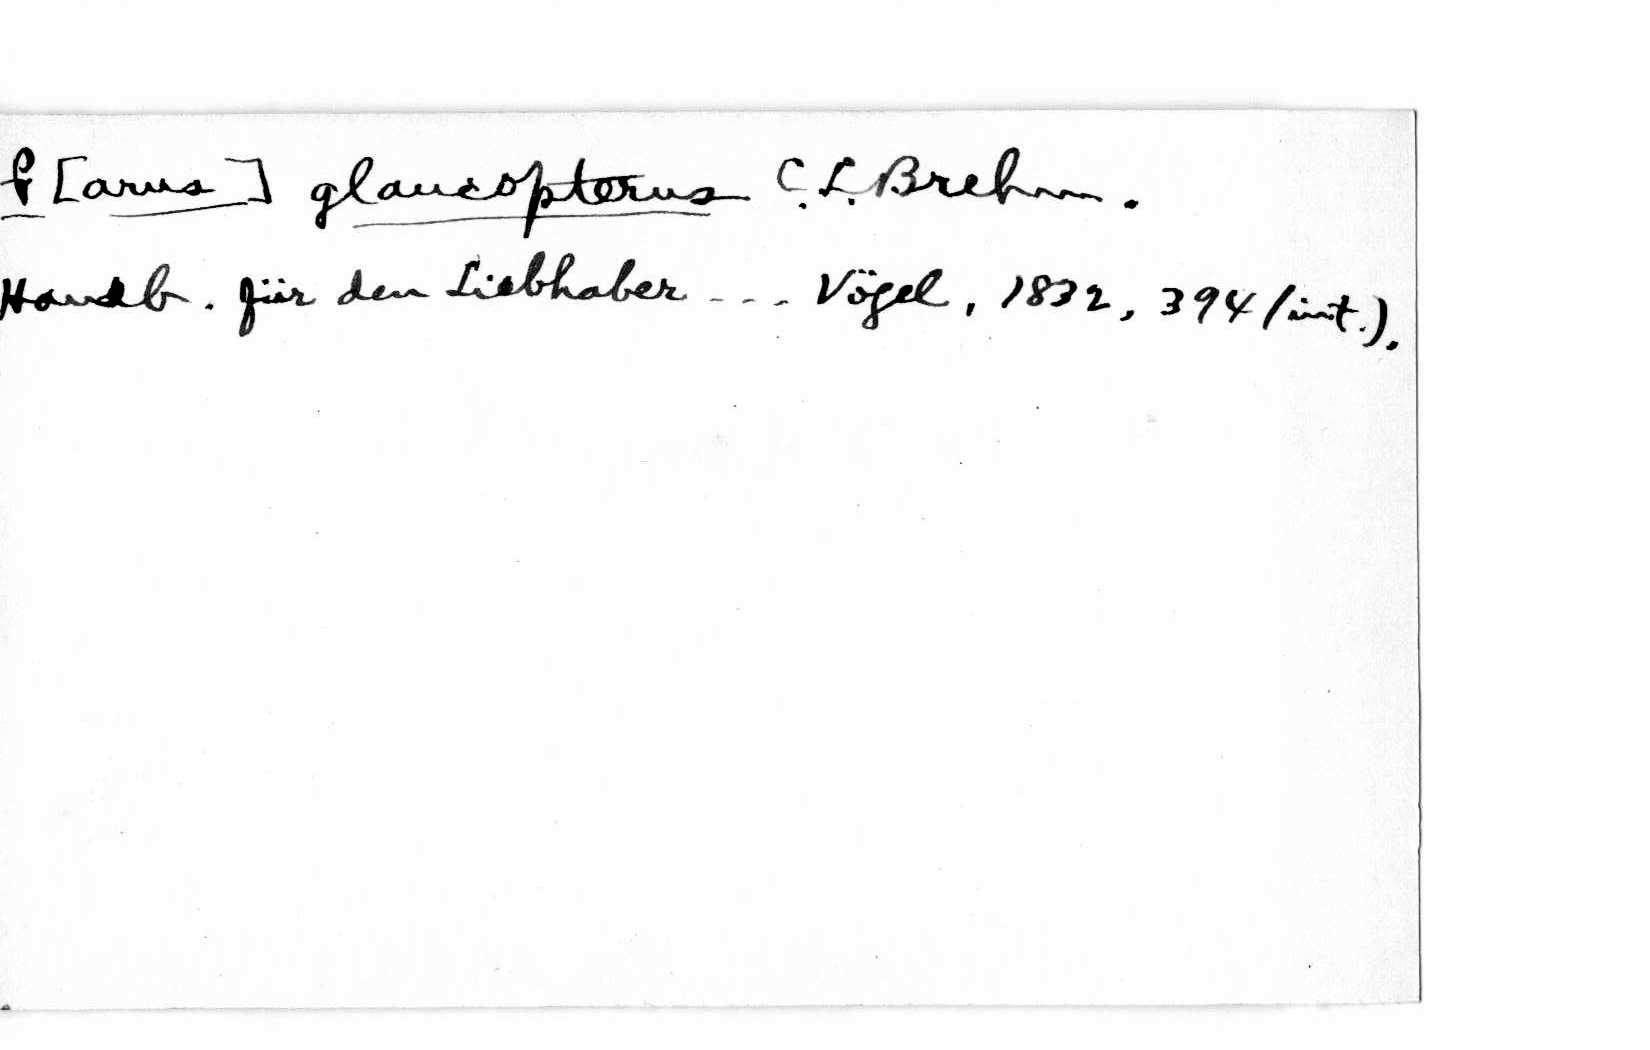 L[arus] glaucopterus C.L.Brehm.
Handb. für den Liebhaber --- Vögel, 1832, 394 (int.).